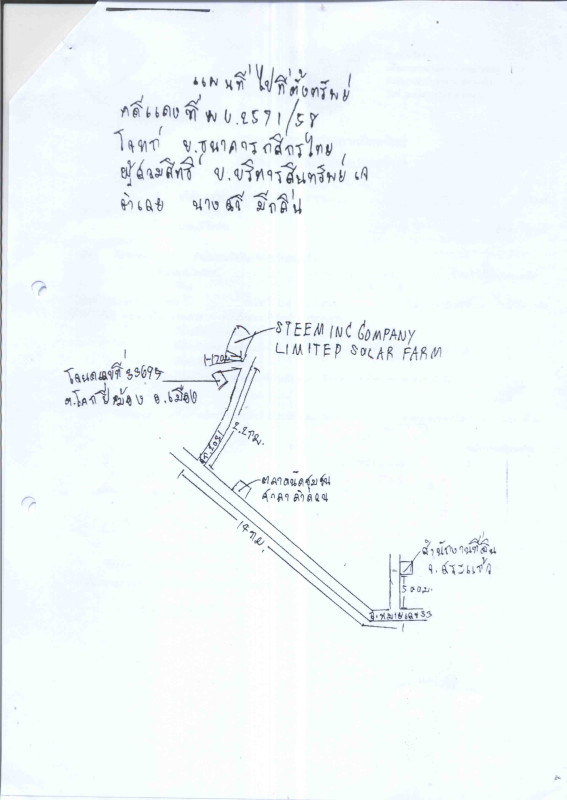 แผนที่ไปที่ตั้งทรัพย์
คดีแดงที่ ผบ.2571/58
โจทก์ บ.ธนาคารกสิกรไทย
ผู้สวมสิทธิ์ บ.บริหารสินทรัพย์ เจ
จำเลย นาง มีกลิ่น
STEEM INC COMPANY
LIMITED SOLAR FARM
170ม.
โฉนดเลขที่ 33695
ต.โคกปี่ฆ้อง อ.เมือง
2.2กม.
ตลาดนัดชุมชน
ศาลาลำดวน
14กม.
สำนักงานที่ดิน
จ.สระแก้ว
500ม.
ถ.หมายเลข33